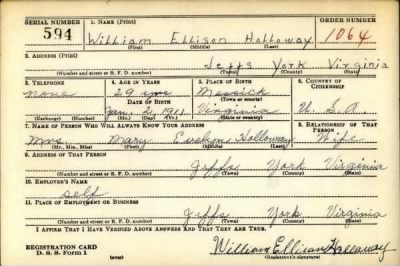 SERIAL NUMBER 1. NAME (Print) ORDER NUMBER
594 William Ellison Holloway 1064
(First) (Middle) (Last)
2. ADDRESS (Print)
Jeffs York Virginia
(Number and street or R. F. D. number) (Town) (County) (State)
3. TELEPHONE 4. AGE IN YEARS 5. PLACE OF BIRTH 6. COUNTRY OF CITIZENSHIP
none 29 yrs Messick
DATE OF BIRTH (Town or county)
Jan. 2, 1911 Virginia U. S. A.
(Exchange) (Number) (Mo.) (Day) (Yr.) (State or country)
7. NAME OF PERSON WHO WILL ALWAYS KNOW YOUR ADDRESS 8. RELATIONSHIP OF THAT PERSON
Mrs. Mary Evelyn Holloway Wife
(Mr., Mrs., Miss) (First) (Middle) (Last)
9. ADDRESS OF THAT PERSON
Jeffs York Virginia
(Number and street or R. F. D. number) (Town) (County) (State)
10. EMPLOYER'S NAME
self
11. PLACE OF EMPLOYMENT OR BUSINESS
Jeffs York Virginia
(Number and street or R. F. D. number) (Town) (County) (State)
I AFFIRM THAT I HAVE VERIFIED ABOVE ANSWERS AND THAT THEY ARE TRUE.
REGISTRATION CARD
D. S. S. Form 1 (over) William Ellison Holloway
(Registrant's signature)